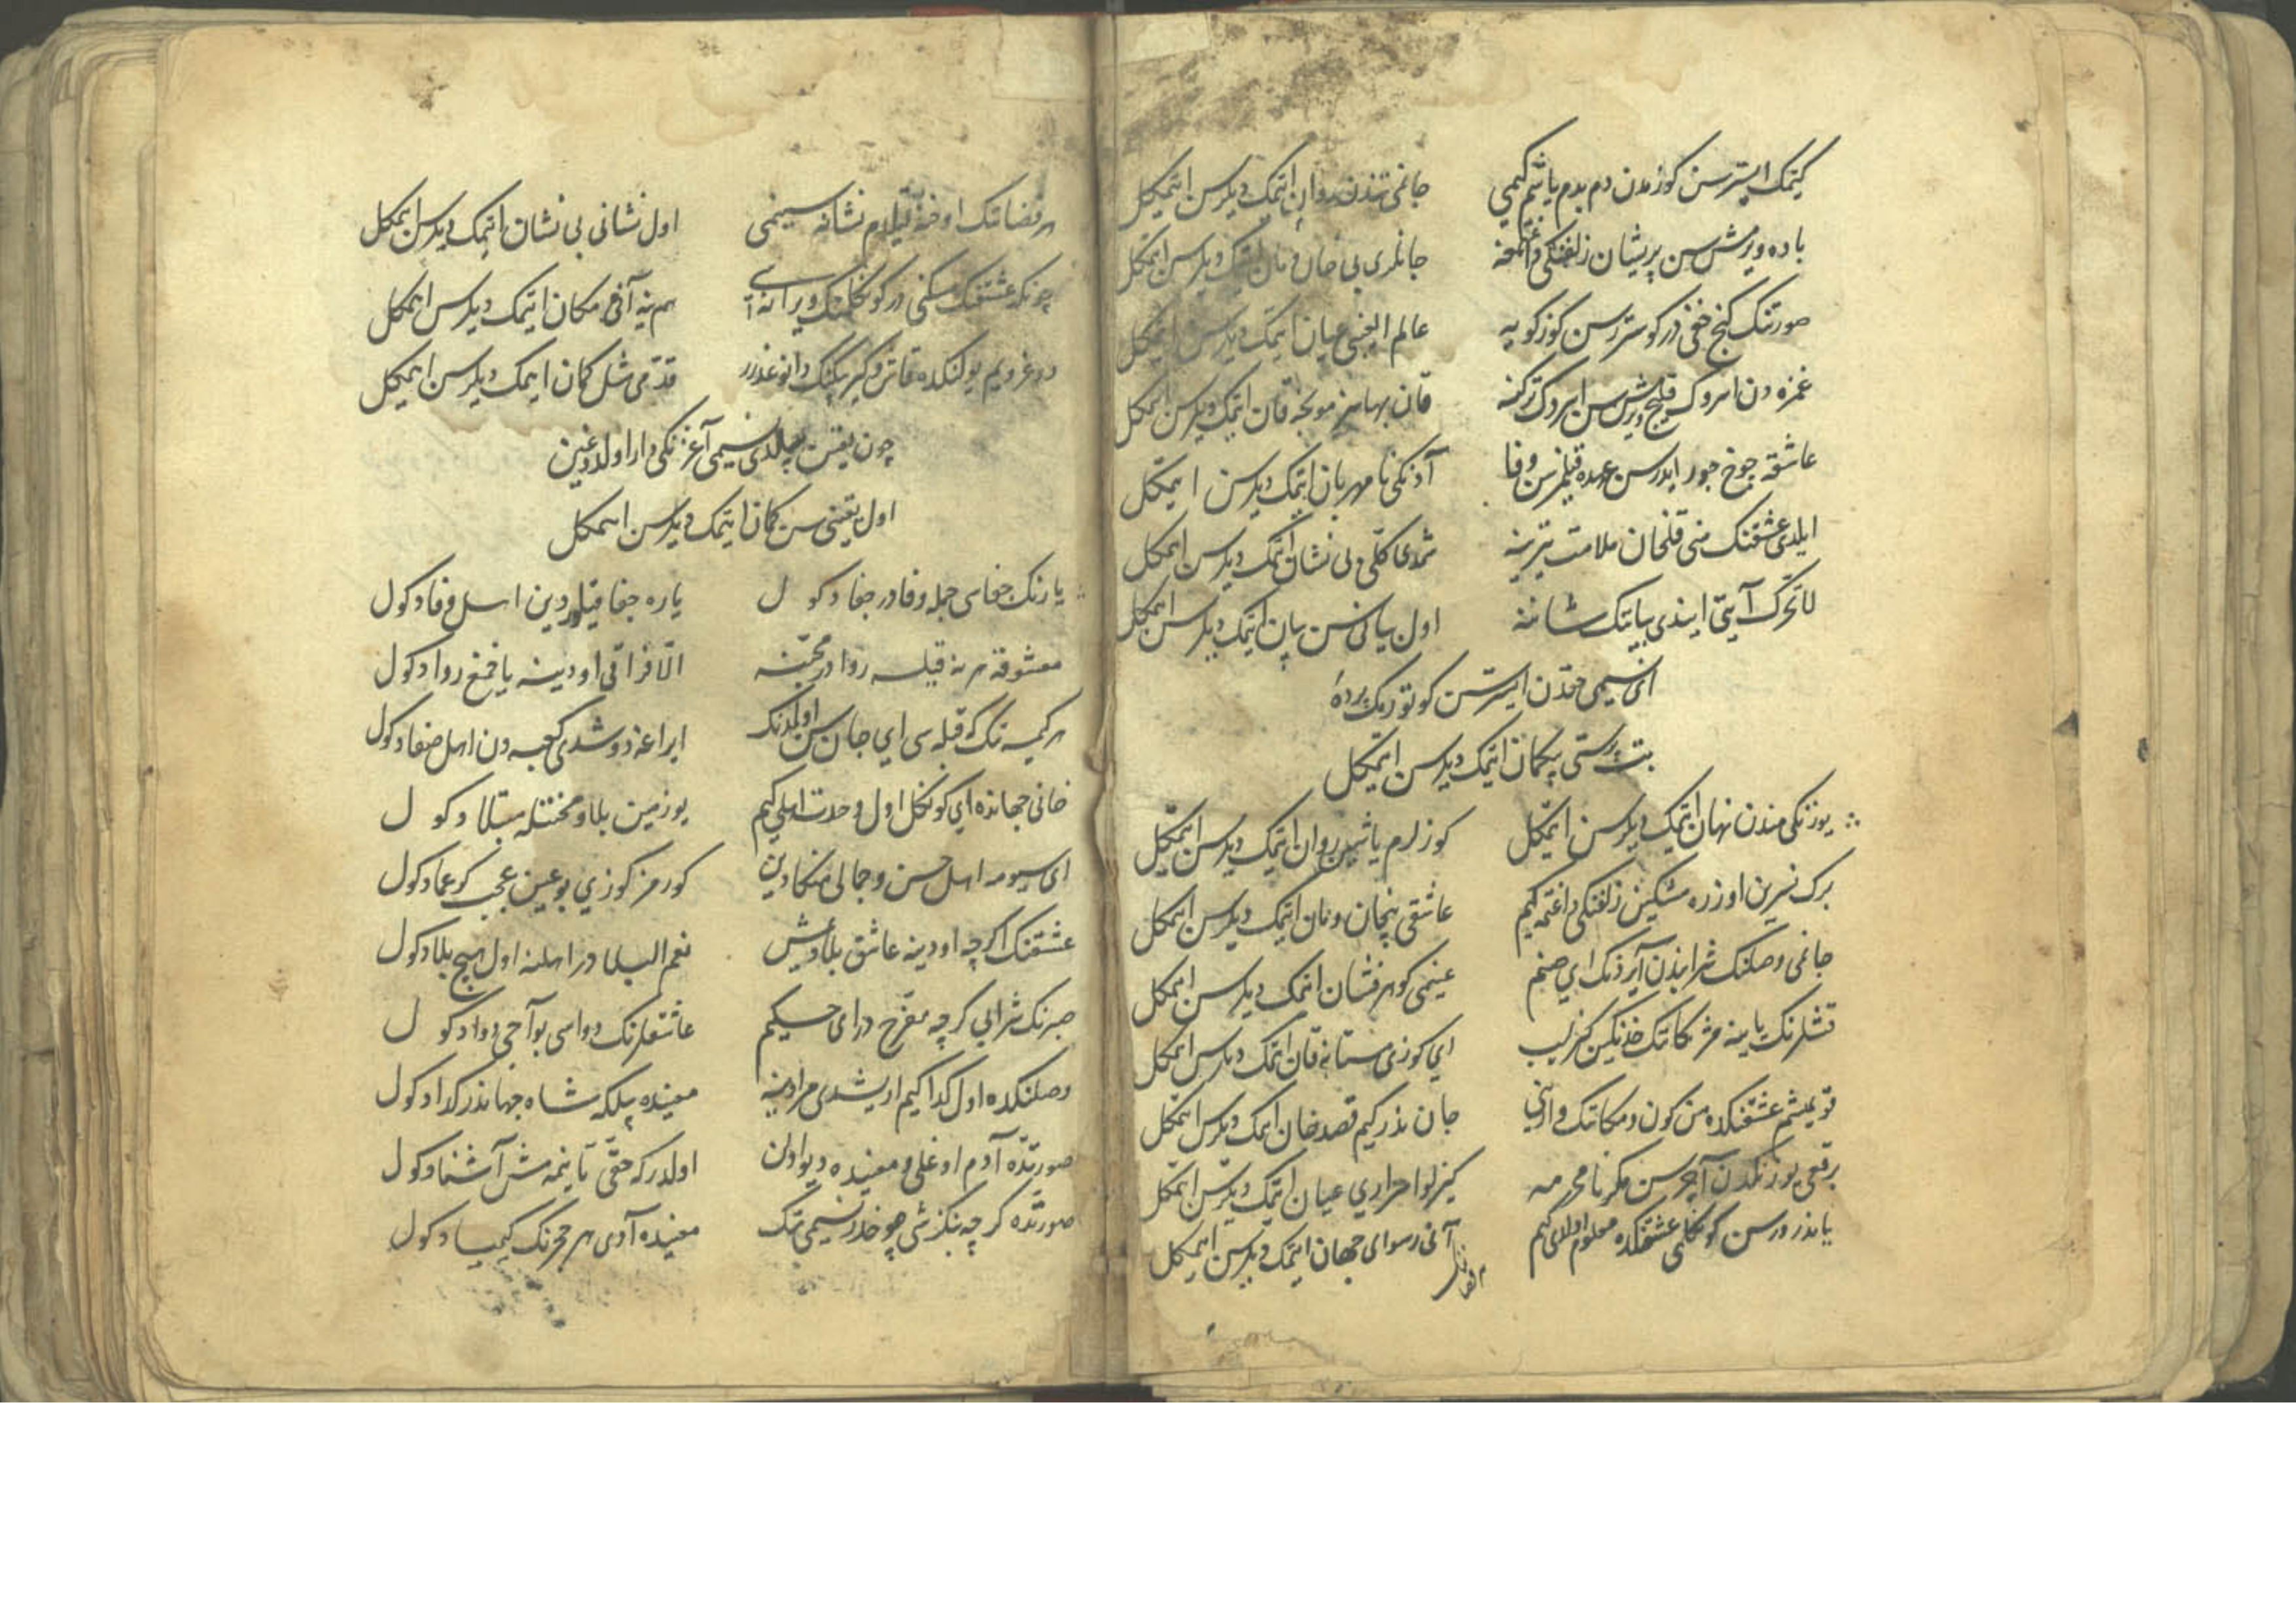 كیتمك استرسن كوزمدن دم بدم یاشم كیمی جانمی تندن روان ایتمك دیلرسن ایتمكل
باده ویرمش سن پریشان زلفنكی جانلری بی خان و مان ایتمك دیلرسن ایتمكل
صورتنك كنج خفی در كوستررسن كوزكویه عالم الغیبی عیان ایتمك دیلرسن ایتمكل
غمزه دن قلیج ویرمش سن قان بهاسز قان ایتمك دیلرسن ایتمكل
عاشقه چوخ جور ایدرسن عهده قیلمزسن وفا آدنكی نا مهربان ایتمك دیلرسن ایتمكل
ایلدی عشقنك منی قلخان ملامت تیرینه شمدی كلی بی نشان ایتمك دیلرسن ایتمكل
لا تحرك آیتی ایندی بیانك شاننه اول بیانی سن بیان ایتمك دیلرسن ایتمكل
ای نسیمی حقدن ایسترسن كوتورمك پرده
بت پرستی ایتمك دیلرسن ایتمكل
یوزنكی مندن نهان ایتمك دیلرسن ایتمكل كوزلرم یاشین روان ایتمك دیلرسن ایتمكل
برك نسرین اوزره مشكین زلفنكی داغتمه كیم عاشقی بیخان و مان ایتمك دیلرسن ایتمكل
جانمی وصلنك شرابندن آیررنك ای صنم عینمی كوهر فشان ایتمك دیلرسن ایتمكل
قشلرنك یاینه مژكانك خدنكین كزلیب ای كوزی مستانه قان ایتمك دیلرسن ایتمكل
قویمشم عشقنكده من كون و مكانك وارنی جان ندر كیم قصد جان ایتمك دیلرسن ایتمكل
برقعی یوزنكدن آچرسن مكر نا محرمه كیزلو اسراری عیان ایتمك دیلرسن ایتمكل
یاندررسن كوكلمی عشقنكده معلوم اولدی كیم آنی رسوای جهان ایتمك دیلرسن ایتمكل
هر قضانك اوخنه قیلدم نشانه سینمی اول نشانی بی نشان ایتمك دیلرسن ایتمكل
چونكه عشقنك مسكنی در كوكلمك ویرانه سی هم ینه آنی مكان ایتمك دیلرسن ایتمكل
دوغرویم یولنكده قدمی مثل كمان ایتمك دیلرسن ایتمكل
چون یقین بیلدی نسیمی آغزنكی وار اولدوغین
اول یقینی سن كمان ایتمك دیلرسن ایتمكل
یارنك جفاسی جمله وفادر جفا دكول یاره جفا قیلور دین اهل وفا دكول
معشوقه هر نه قیلسه روا در محبنه الا فراقی اودینه یاخمغ روا دكول
هر كیمسه نك كه قبله سی ای جان سن اولمدنك ایراغه دوشدی كعبه دن اهل صفا دكول
فانی جهانده ای كوكل اول وحدت اهلی كیم یوزمین بلا و محنتله مبتلا دكول
ای سیومه اهل حسن و جمالی منكا دین كورمز كوزی بو عین عجب كور عما دكول
عشقنك اكرچه اودینه عاشق بلا دیمش نعم البلا در اهلنه اول هیچ بلا دكول
صبرنك شرابی كرچه مفرح در ای حكیم عاشقلرنك دواسی بو آجی دوا دكول
وصلنكده اول كدا كیم ایریشدی مرادینه معینده بیلكه شاه جهاندر كدا دكول
صورتده آدم اوغلی و معینده دیو اولن اولدر كه حقی تانیمه مش آشنا دكول
صورتده كرچه بنكزشی چوخدر نسیمی نك معینده آدی هر حجرنك كیمیا دكول